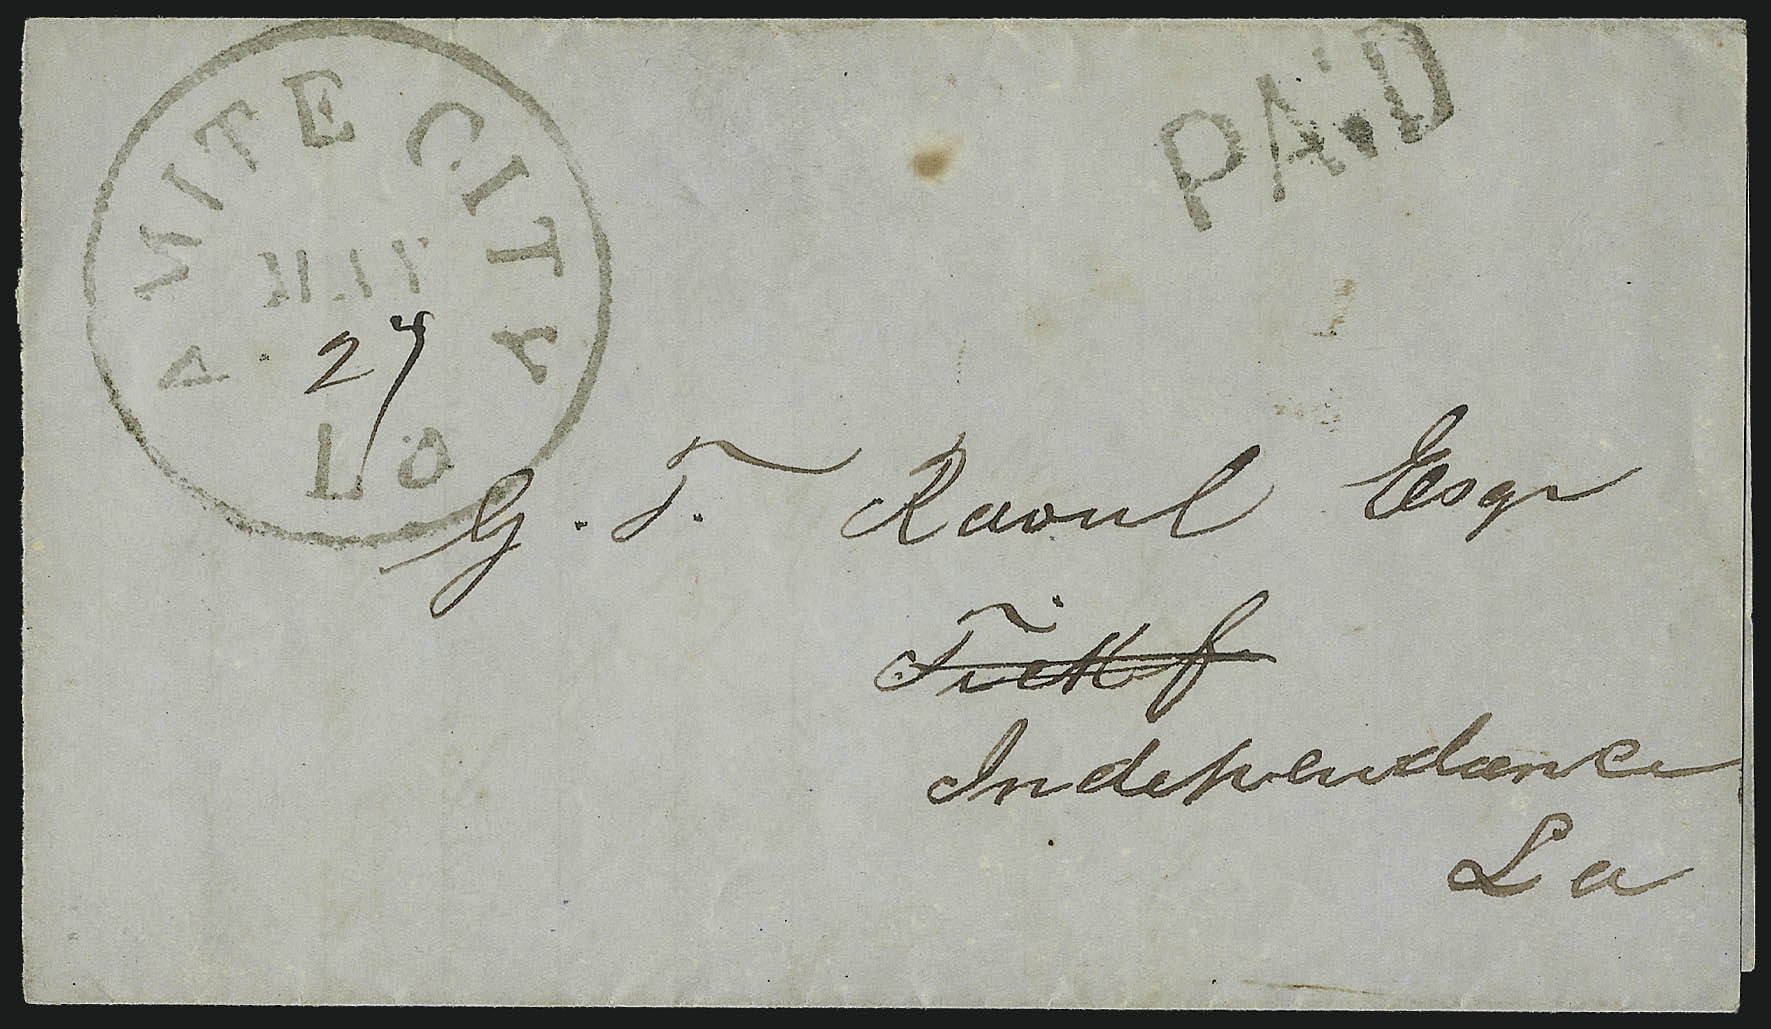 AMITE CITY
MAY
27
La
PAID
G. T. Raoul Esqr
Tickf
Independance
La